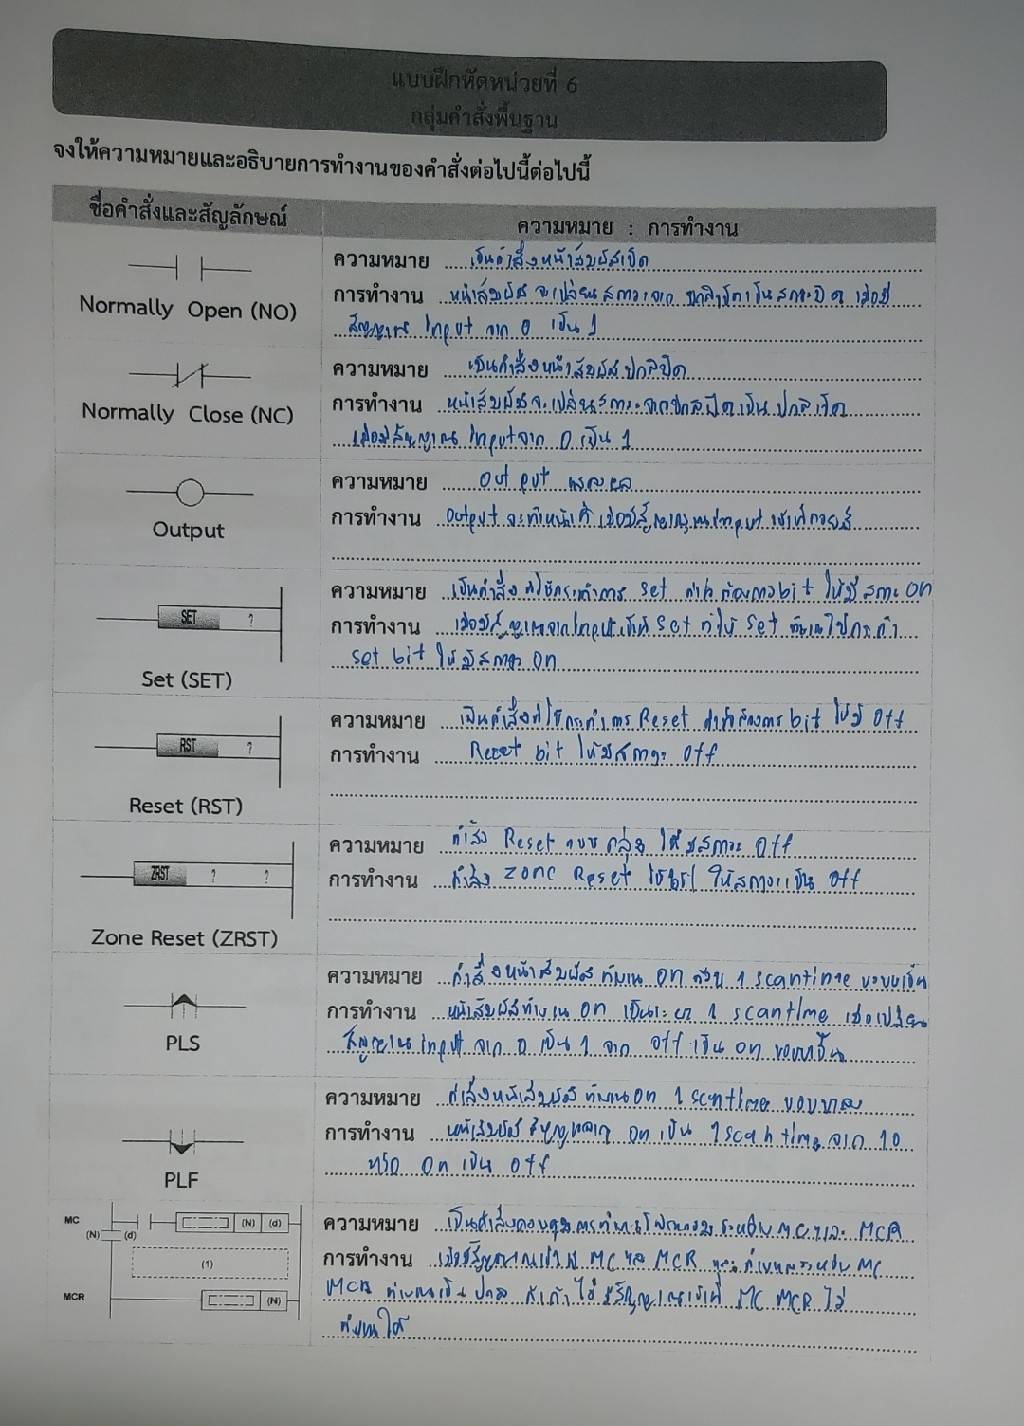 แบบฝึกหัดหน่วยที่ 6
กลุ่มคำสั่งพื้นฐาน
จงให้ความหมายและอธิบายการทำงานของคำสั่งต่อไปนี้ต่อไปนี้
ชื่อคำสั่งและสัญลักษณ์ ความหมาย : การทำงาน
Normally Open (NO)
ความหมาย เป็นคำสั่งหน้าสัมผัสเปิด
การทำงาน หน้าสัมผัส จะเปลี่ยนสภาวะจาก เมื่อมี
สัญญาณ input จาก 0 เป็น 1
Normally Close (NC)
ความหมาย เป็นคำสั่งหน้าสัมผัสปกติปิด
การทำงาน หน้าสัมผัสจะเปลี่ยนสภาวะจากปกติปิดเป็น ปกติเปิด
เมื่อมีสัญญาณ input จาก 0 เป็น 1
Output
ความหมาย Out put แสดงผล
การทำงาน Output จะทำหน้าที่ เมื่อมีสัญญาณ input เข้าที่คอยล์
SET ?
Set (SET)
ความหมาย เป็นคำสั่งที่ใช้กระทำการ Set ค่า ต้องการ bit ให้มีสภาวะ ON
การทำงาน เมื่อมีสัญญาณจาก input เข้าที่ Set ทำให้ Set
Set bit ให้มีสภาวะ ON
RST ?
Reset (RST)
ความหมาย เป็นคำสั่งที่ใช้กระทำการ Reset ต้องการ bit ให้มี Off
การทำงาน Reset bit ให้มีสภาวะ Off
ZRST ? ?
Zone Reset (ZRST)
ความหมาย คำสั่ง Reset แบบ กลุ่ม ให้มีสภาวะ Off
การทำงาน คำสั่ง Zone Reset ให้สภาวะเป็น Off
PLS
ความหมาย คำสั่งหน้าสัมผัส ทำงาน on 1 scantime ขอบขึ้น
การทำงาน หน้าสัมผัสทำงาน on 1 scantime เมื่อเปลี่ยน
สัญญาณ input จาก 0 เป็น 1 จาก Off เป็น on ขอบขาขึ้น
PLF
ความหมาย คำสั่งหน้าสัมผัส ทำงาน on 1 scantime ขอบขาลง
การทำงาน หน้าสัมผัส on เป็น 1 scan time จาก 10
หรือ on เป็น off
MC (N) (d)
(N) (d)
(1)
MCR (N)
ความหมาย เป็นคำสั่งควบคุมการทำงาน ระหว่าง MC และ MCR
การทำงาน เมื่อมีสัญญาณเข้า MC MCR ระหว่าง MC
MCR ทำงานเป็น ปกติ ถ้า ไม่ มีสัญญาณเข้าที่ MC MCR ไม่
ทำงานได้